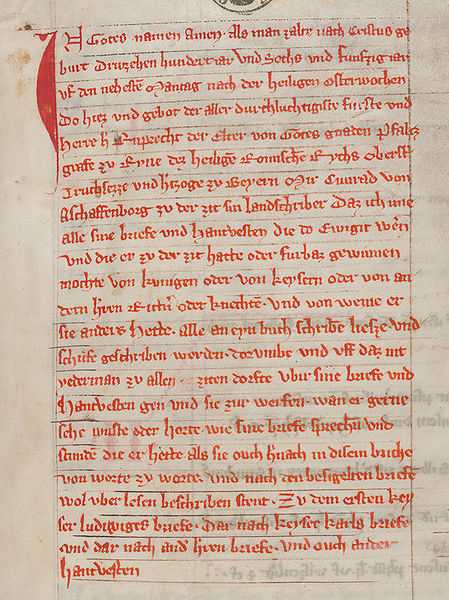 In Gotes namen Amen. Als man zalte nach Cristus ge
burt Druzehen hundert iar vnd Sechs vnd funfzig iar
vf den nehesten Mantag nach der heiligen Osterwochen
Do hiez vnd gebot der aller durchluchtigiste furste vnd
Herre h Ruprecht der Elter von Gotes gnaden Pfaltz
grafe zu Ryne dez heilige Romische Rychs Oberste
Truchsezze vnd h'tzoge zu Beyern Mir Cunrad von
Aschaffenborg zu der zit sin landschriber Daz ich ime
alle sine briefe vnd Hantvesten die do Ewigit wern
vnd die er zu der zit hatte oder furbaz gewinnen
mochte von kunigen oder von keysern oder von an
dern h'ren Richn oder knechte. vnd von weme er
sie anders Hette. alle an eyn buch schribe liesze vnd
schufe geschriben werden. dorumbe vnd uff daz nit
yederman zu allen ziten dorfte vbir sine briefe vnd
Hantvesten gen vnd sie zur werfen. wan er gerne
sehe wuste oder horte wie sine briefe sprechn vnd
stunde die er hette als sie ouch hnach in disem buche
von worte zu worte. vnd nach den besigelten briefe
wol vber lesen beschriben stent. Zu dem ersten key
ser ludwiges briefe. Dar nach keyser karls briefe
vnd dar nach and' h'ren briefe. vnd ouch ander
hantvesten